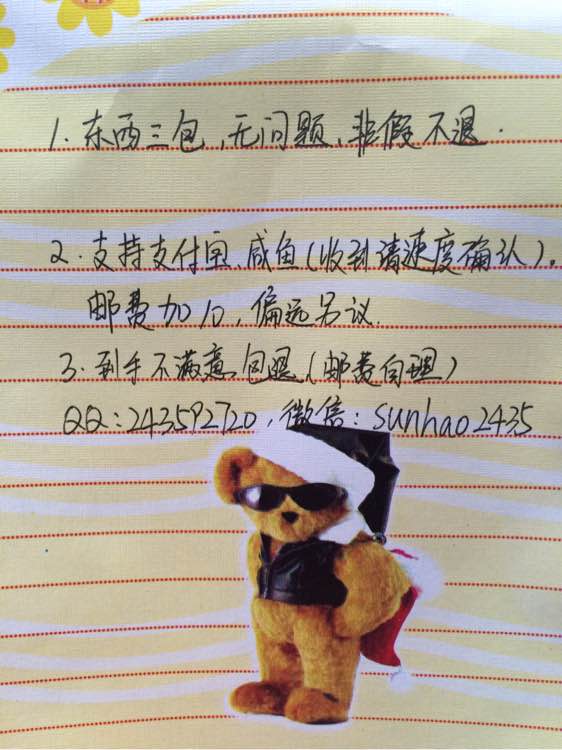 1.东西三包,无问题,非假不退.
2.支持支付宝.咸鱼(收到请速度确认)。
邮费加10,偏远另议.
3.到手不满意包退(邮费自理)
QQ:243592720,微信:sunhao2435